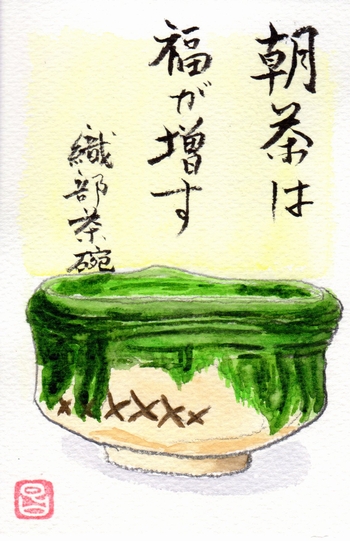 朝茶は
福が増す
織部茶碗